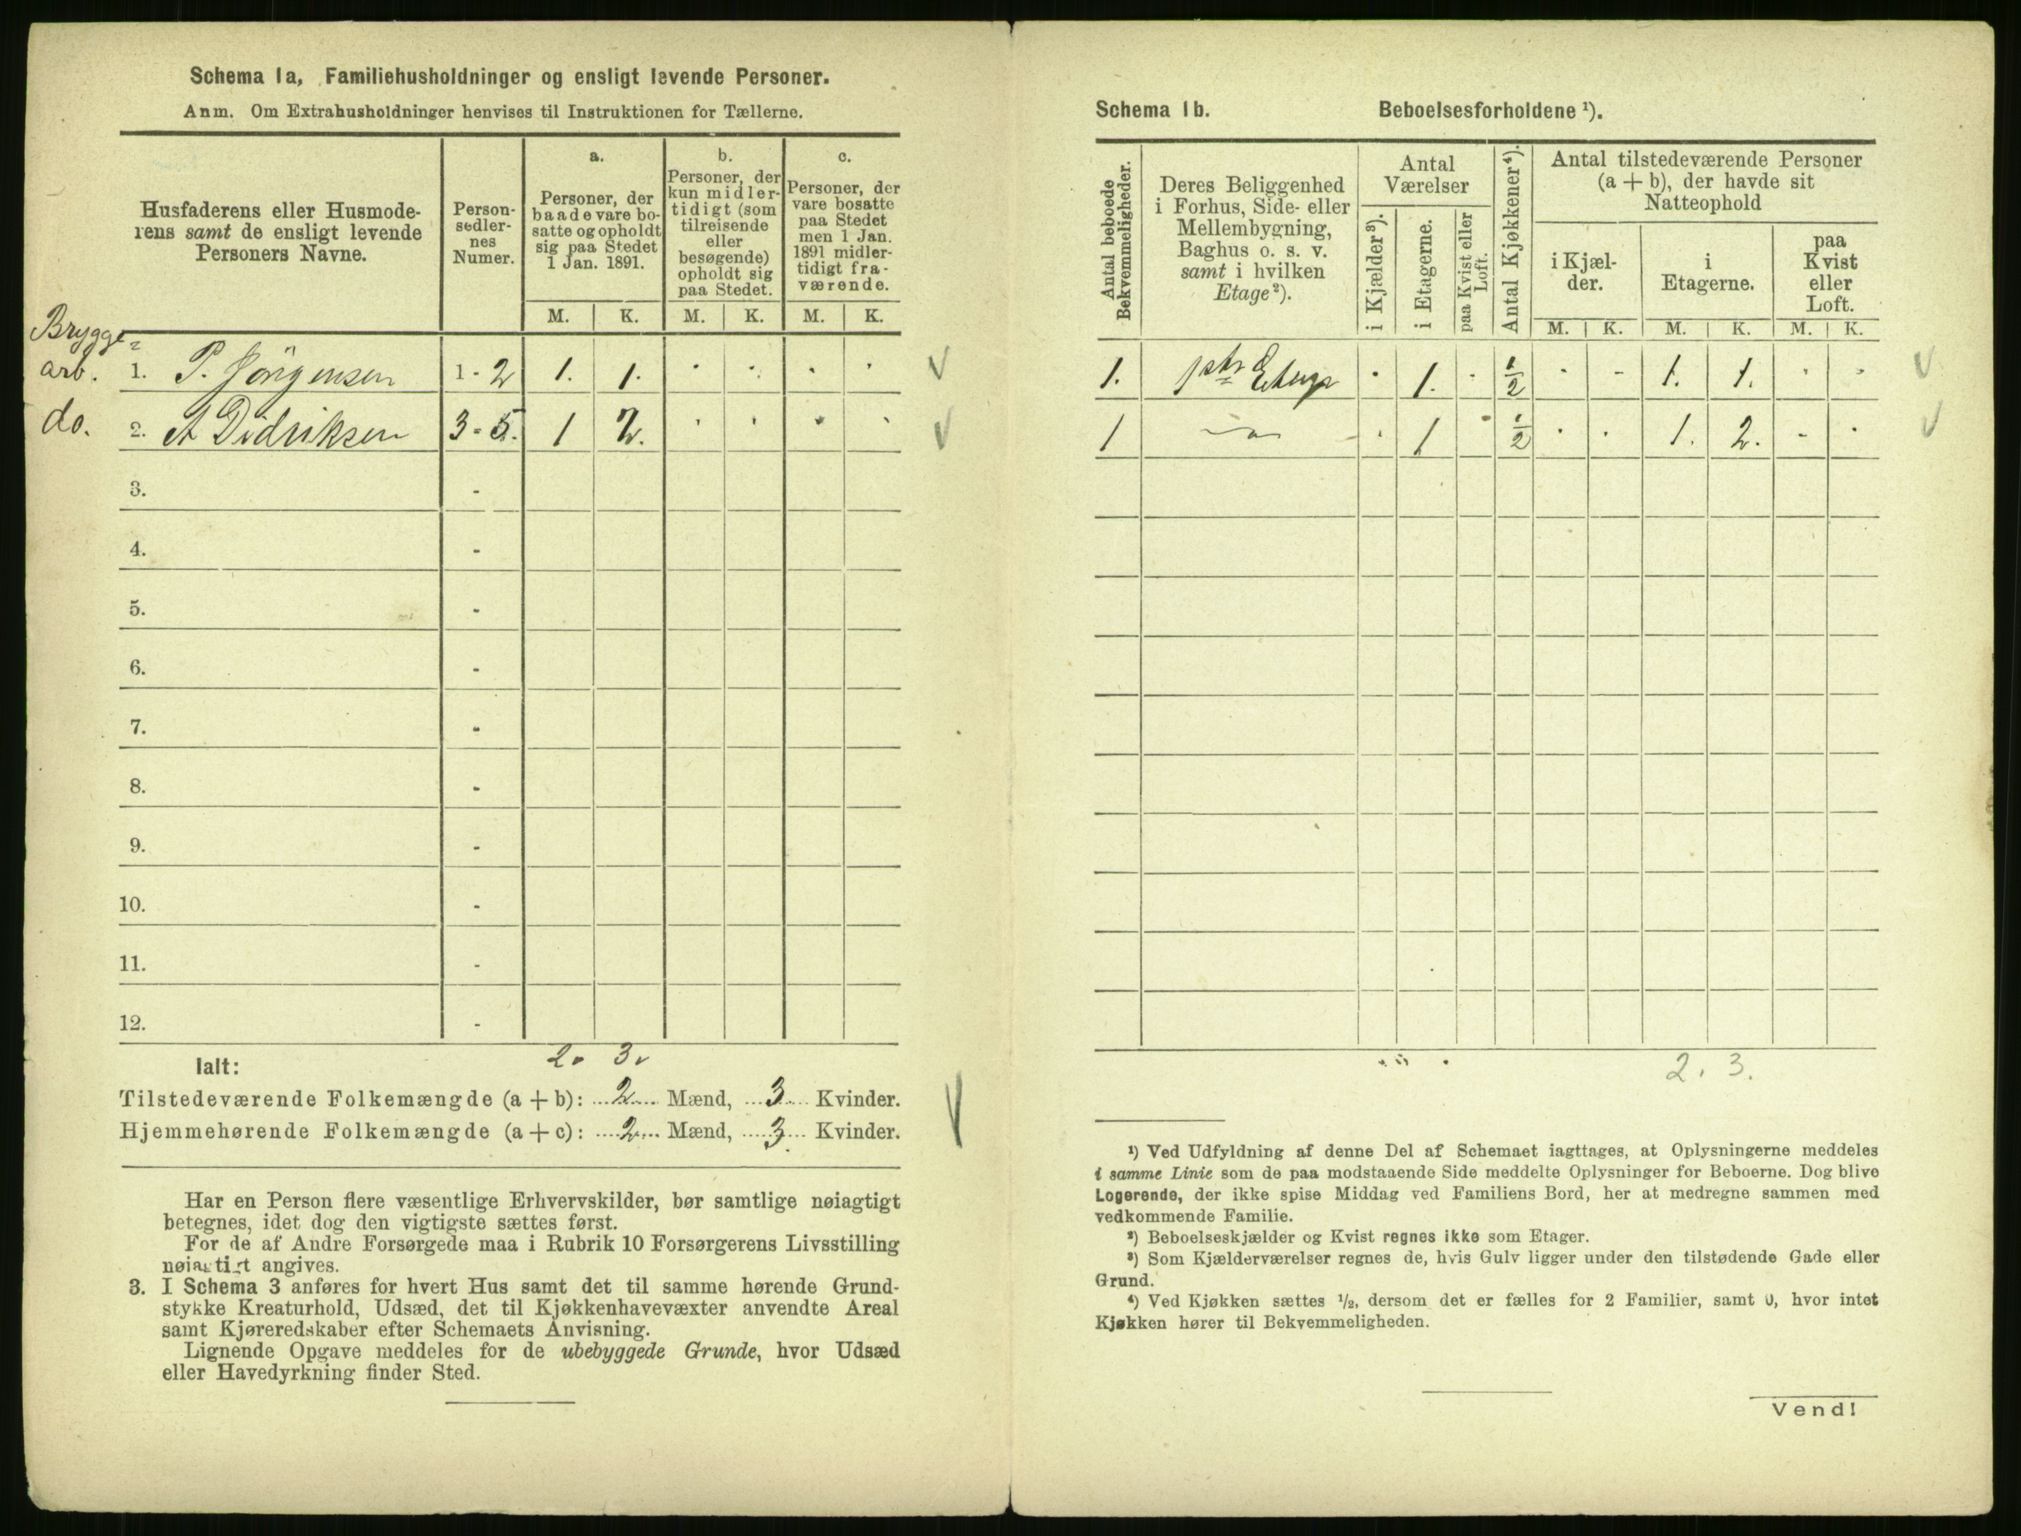 Schema 1a, Familiehusholdninger og ensligt levende Personer.
Anm. Om Extrahusholdninger henvises til Instruktionen for Tællerne.
Husfaderens eller Husmode-
rens samt de ensligt levende
Personers Navne.
Person-
sedler-
nes
Numer.
a.
Personer, der
baade vare bo-
satte og opholdt
sig paa Stedet
1 Jan. 1891.
b.
Personer, der
kun midler-
tidigt (som
tilreisende
eller
besøgende)
opholdt sig
paa Stedet.
c.
Personer, der
vare bosatte
paa Stedet
men 1 Jan.
1891 midler-
tidigt fra-
værende.
M. K. M. K. M. K.
Brygge-
arb. 1. P. Jörgensen 1 - 2 1. 1. · · · ·
do. 2. A Didriksen 3 - 5. 1 2. · · · ·
3. -
4. -
5. -
6. -
7. -
8. -
9. -
10. -
11. -
12. -
Ialt: 2. 3.
Tilstedeværende Folkemængde (a + b): 2 Mænd, 3 Kvinder.
Hjemmehørende Folkemængde (a + c): 2 Mænd, 3 Kvinder.
Har en Person flere væsentlige Erhvervskilder, bør samtlige nøiagtigt
betegnes, idet dog den vigtigste sættes først.
For de af Andre Forsørgede maa i Rubrik 10 Forsørgerens Livsstilling
nøiagtigt angives.
3. I Schema 3 anføres for hvert Hus samt det til samme hørende Grund-
stykke Kreaturhold, Udsæd, det til Kjøkkenhavevæxter anvendte Areal
samt Kjøreredskaber efter Schemaets Anvisning.
Lignende Opgave meddeles for de ubebyggede Grunde, hvor Udsæd
eller Havedyrkning finder Sted.
Schema 1b. Beboelsesforholdene ¹).
Antal beboede
Bekvemmeligheder.
Deres Beliggenhed
i Forhus, Side- eller
Mellembygning,
Baghus o. s. v.
samt i hvilken
Etage²).
Antal
Værelser
i Kjælder³).
i Etagerne.
paa Kvist eller
Loft.
Antal Kjøkkener⁴).
Antal tilstedeværende Personer
(a + b), der havde sit
Natteophold
i Kjæl-
der.
i
Etagerne.
paa
Kvist
eller
Loft.
M. K. M. K. M. K.
1. 1ste Etage · 1. · ½ · - 1. 1. · ·
1 — " — · 1 · ½ · · 1. 2. - ·
2. 3.
¹) Ved Udfyldning af denne Del af Schemaet iagttages, at Oplysningerne meddeles
i samme Linie som de paa modstaaende Side meddelte Oplysninger for Beboerne. Dog blive
Logerende, der ikke spise Middag ved Familiens Bord, her at medregne sammen med
vedkommende Familie.
²) Beboelseskjælder og Kvist regnes ikke som Etager.
³) Som Kjælderværelser regnes de, hvis Gulv ligger under den tilstødende Gade eller
Grund.
⁴) Ved Kjøkken sættes ½, dersom det er fælles for 2 Familier, samt 0, hvor intet
Kjøkken hører til Bekvemmeligheden.
Vend!